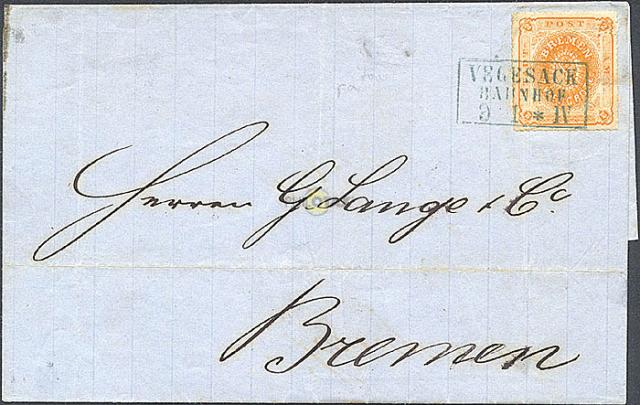 POST
BREMEN
VEGESACK
BAHNHOF
9 1 * IV
Herren G Lange & Co.
Bremen